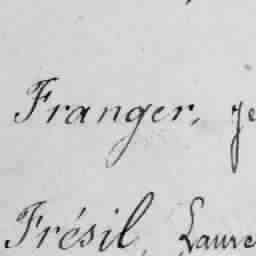 Franger, Je
Frésil, Laure